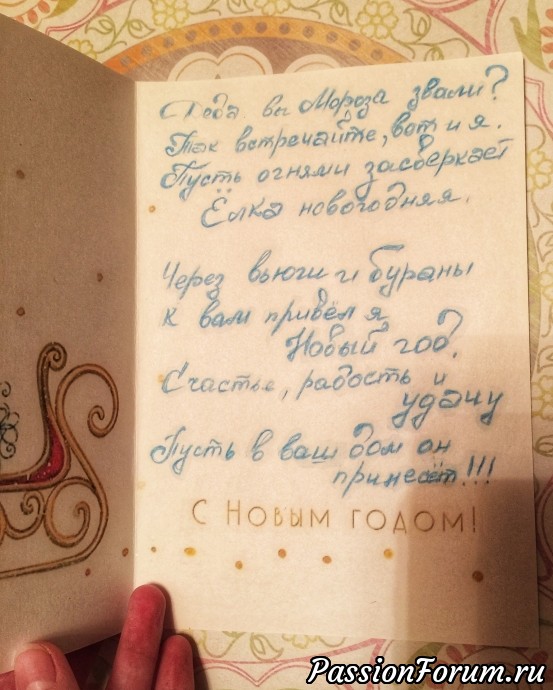 Деда вы Мороза звали?
Так встречайте, вот и я.
Пусть огнями засверкает
Ёлка новогодняя.
Через вьюги и бураны
К вам привёл я
Новый год.
Счастье, радость и
удачу
Пусть в ваш дом он
принесёт!!!
С НОВЫМ ГОДОМ!
PassionForum.ru